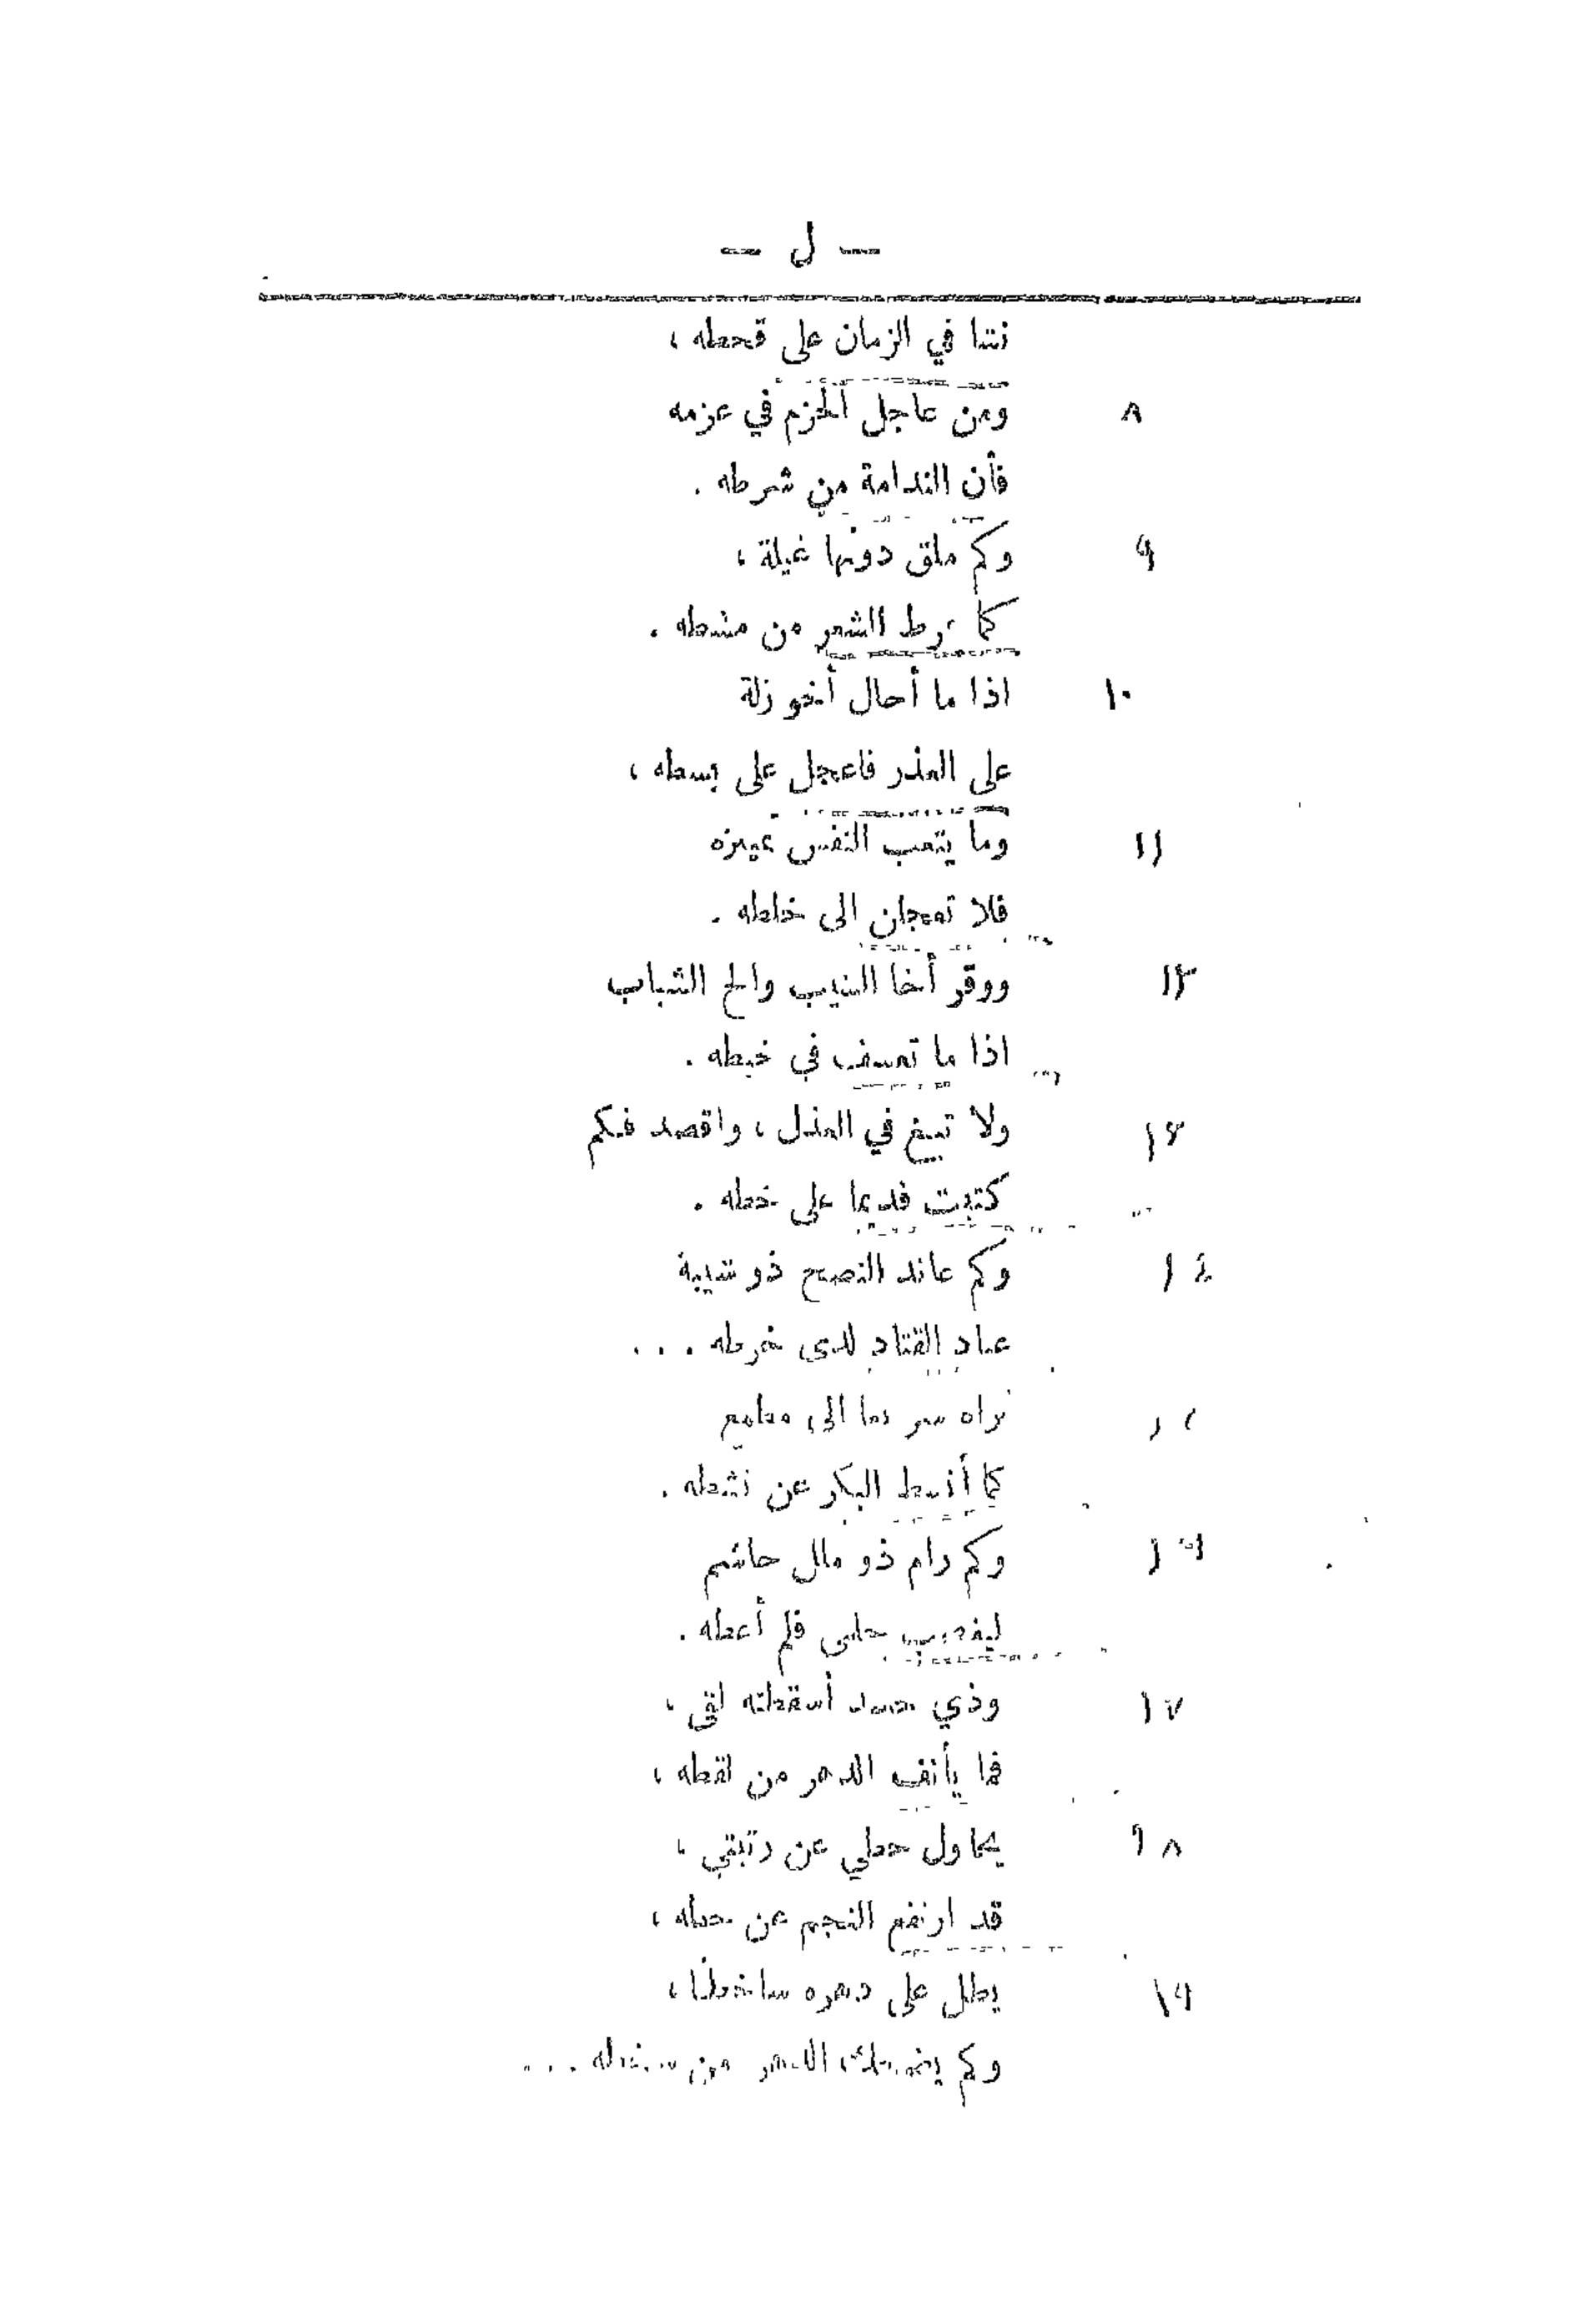 — ل —
نتدا في الزمان على قحطه ،
٨ ومن عاجل الحزم في عزمه
فأن الندامة من شرطه .
٩ وكم ملق دونها غيلة ،
كما يمرط الشعر من مشطه .
١٠ اذا ما أحال أخو زلة
على العذر فاعجل على بسطه ،
١١ وما يتعب النفس تمييزه
فلا تعجلن الى خلطه .
١٢ ووقر أخا الشيب والح الشباب
اذا ما تعسف في خبطه .
١٣ ولا تبغ في العذل ، واقصد فكم
كتبت قديما على خطه .
١٤ وكم عاند النصح ذو شيبة
عناد القتاد لدى خرطه . . .
تراه سريعا الى مطمع
كما أنشط البكر عن نشطه .
١٦ وكم رام ذو ملل حاشم
ليغصب حلمي فلم أعطه .
١٧ وذي حسد أسقطته لقى ،
فما يأنف الدهر من لقطه ،
١٨ يحاول حطي عن رتبتي ،
قد ارتفع النجم عن حطه ،
١٩ يظل على دهره ساخطا ،
وكم يضحك الدهر من سخطه . . .